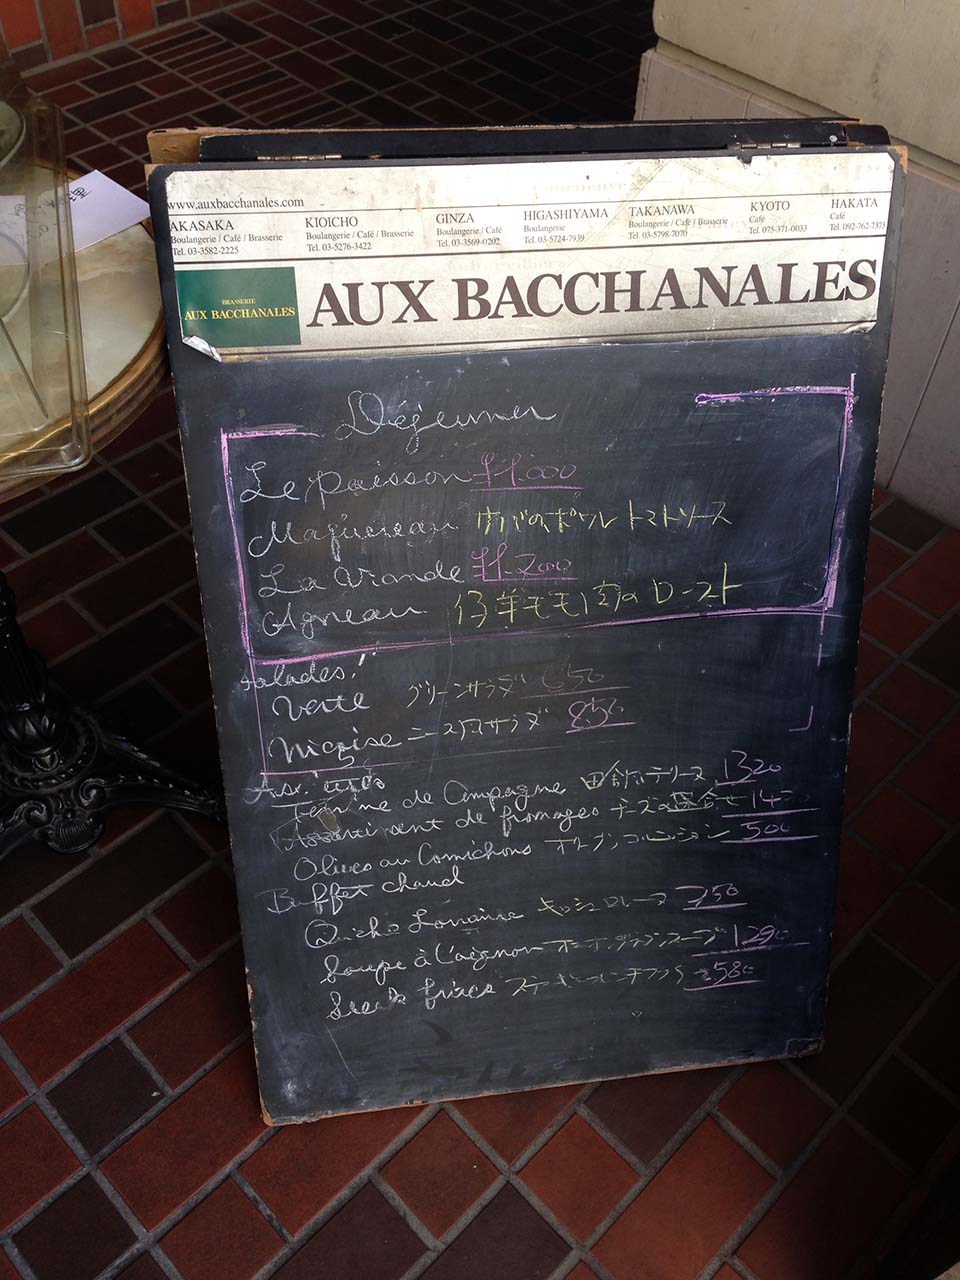 www.auxbacchanales.com
AKASAKA
Boulangerie / Café / Brasserie
Tel. 03-3582-2225
KIOICHO
Boulangerie / Café / Brasserie
Tel. 03-5276-3422
GINZA
Boulangerie / Café
Tel. 03-3569-0202
HIGASHIYAMA
Boulangerie
Tel. 03-5724-7939
TAKANAWA
Boulangerie / Café / Brasserie
Tel. 03-5798-7070
KYOTO
Café
Tel. 075-371-0033
HAKATA
Café
Tel. 092-762-7373
BRASSERIE
AUX BACCHANALES
AUX BACCHANALES
Déjeuner
Le poisson ¥1.000
Maquereau サバのポワレ トマトソース
La Viande ¥1.200
Agneau 仔羊モモ肉のロースト
Salades!
Verte グリーンサラダ 650
Niçoise ニース風サラダ 850
Assiettes
Terrine de Campagne 田舎風テリーヌ 1320
Assortiment de fromages チーズの盛合せ
Olives au Cornichons 500
Buffet chaud
Quiche Lorraine キッシュロレーヌ 750
Soupe à L'oignon オニオングラタンスープ 1290
Steak frites